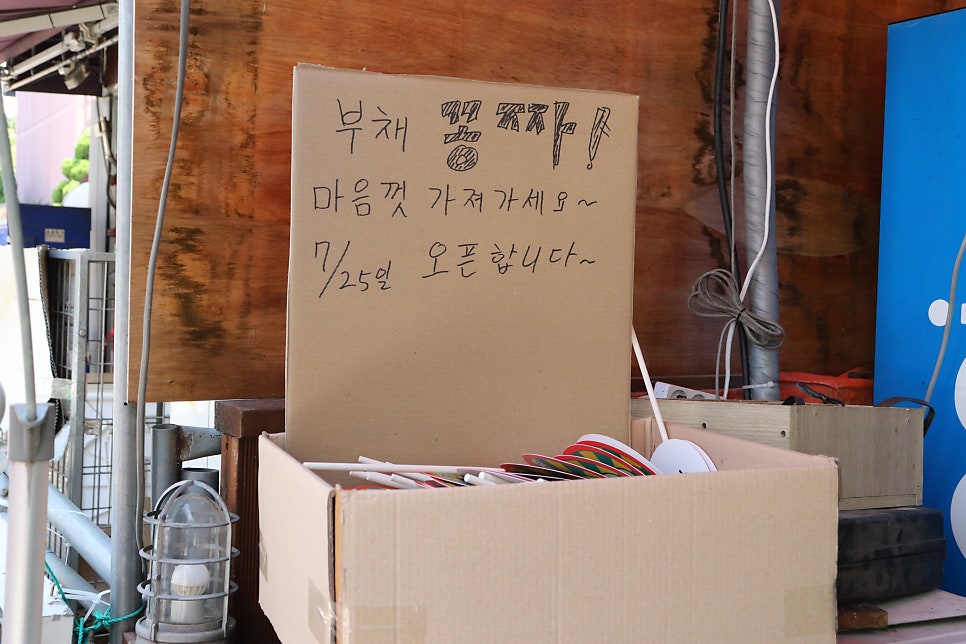 부채 꽁짜!
마음껏 가져가세요~
7/25일 오픈합니다~